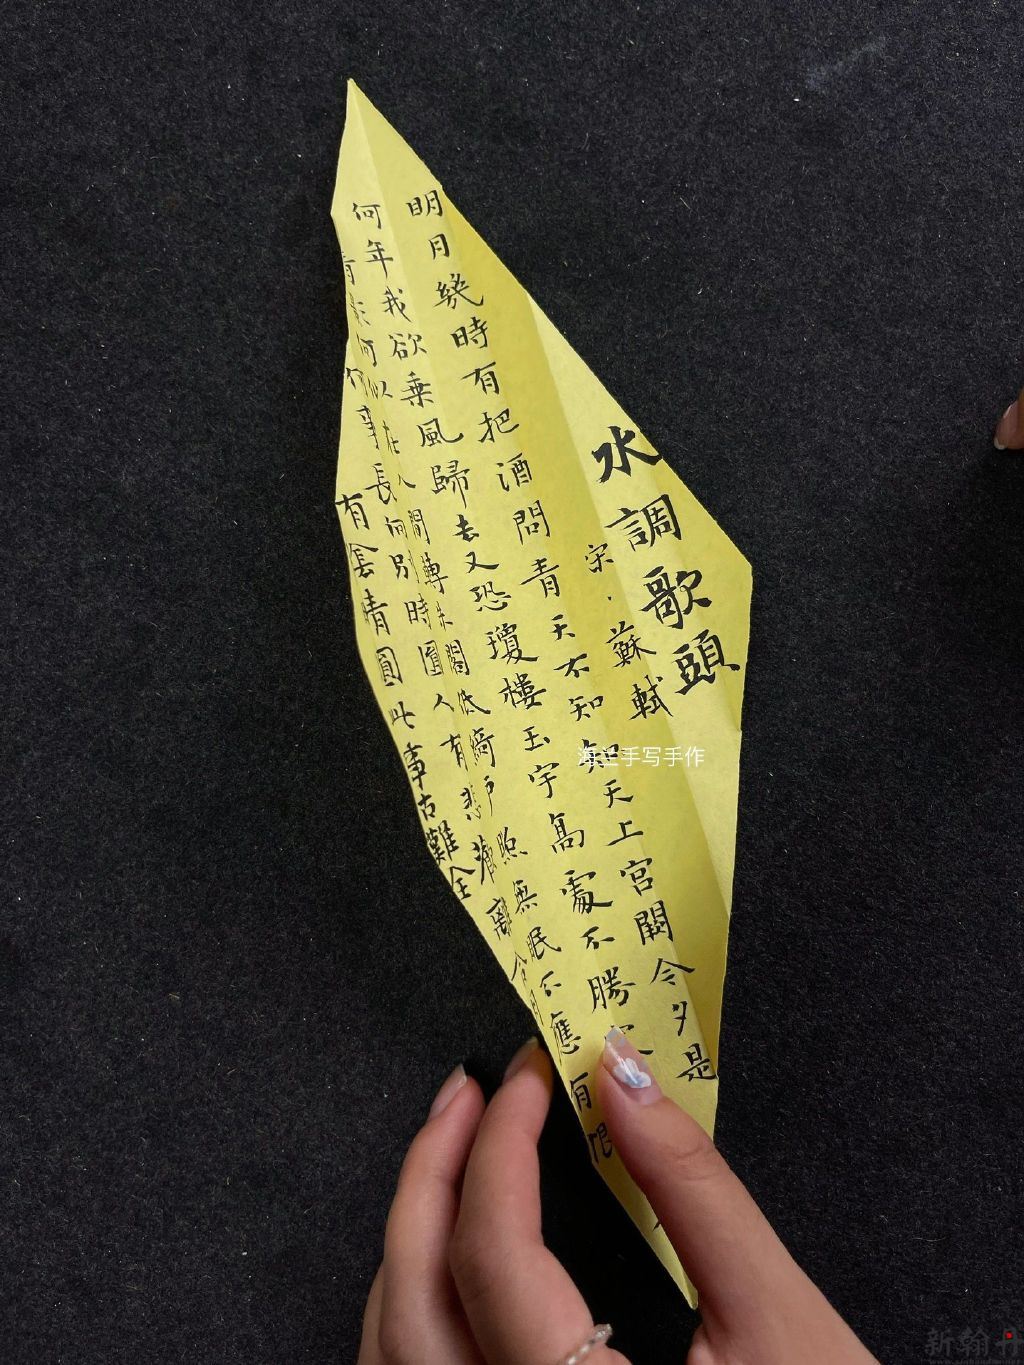 水調歌頭
宋·蘇軾
明月幾時有把酒問青天不知知天上宮闕令夕是
何年我欲乘風歸去又恐瓊樓玉宇高處不勝
何似在人間轉朱閣低綺戶照無眠不應有恨
何事長向別時圓人有悲歡離合月
有陰晴圓此事古難全
手写手作
新翰丹